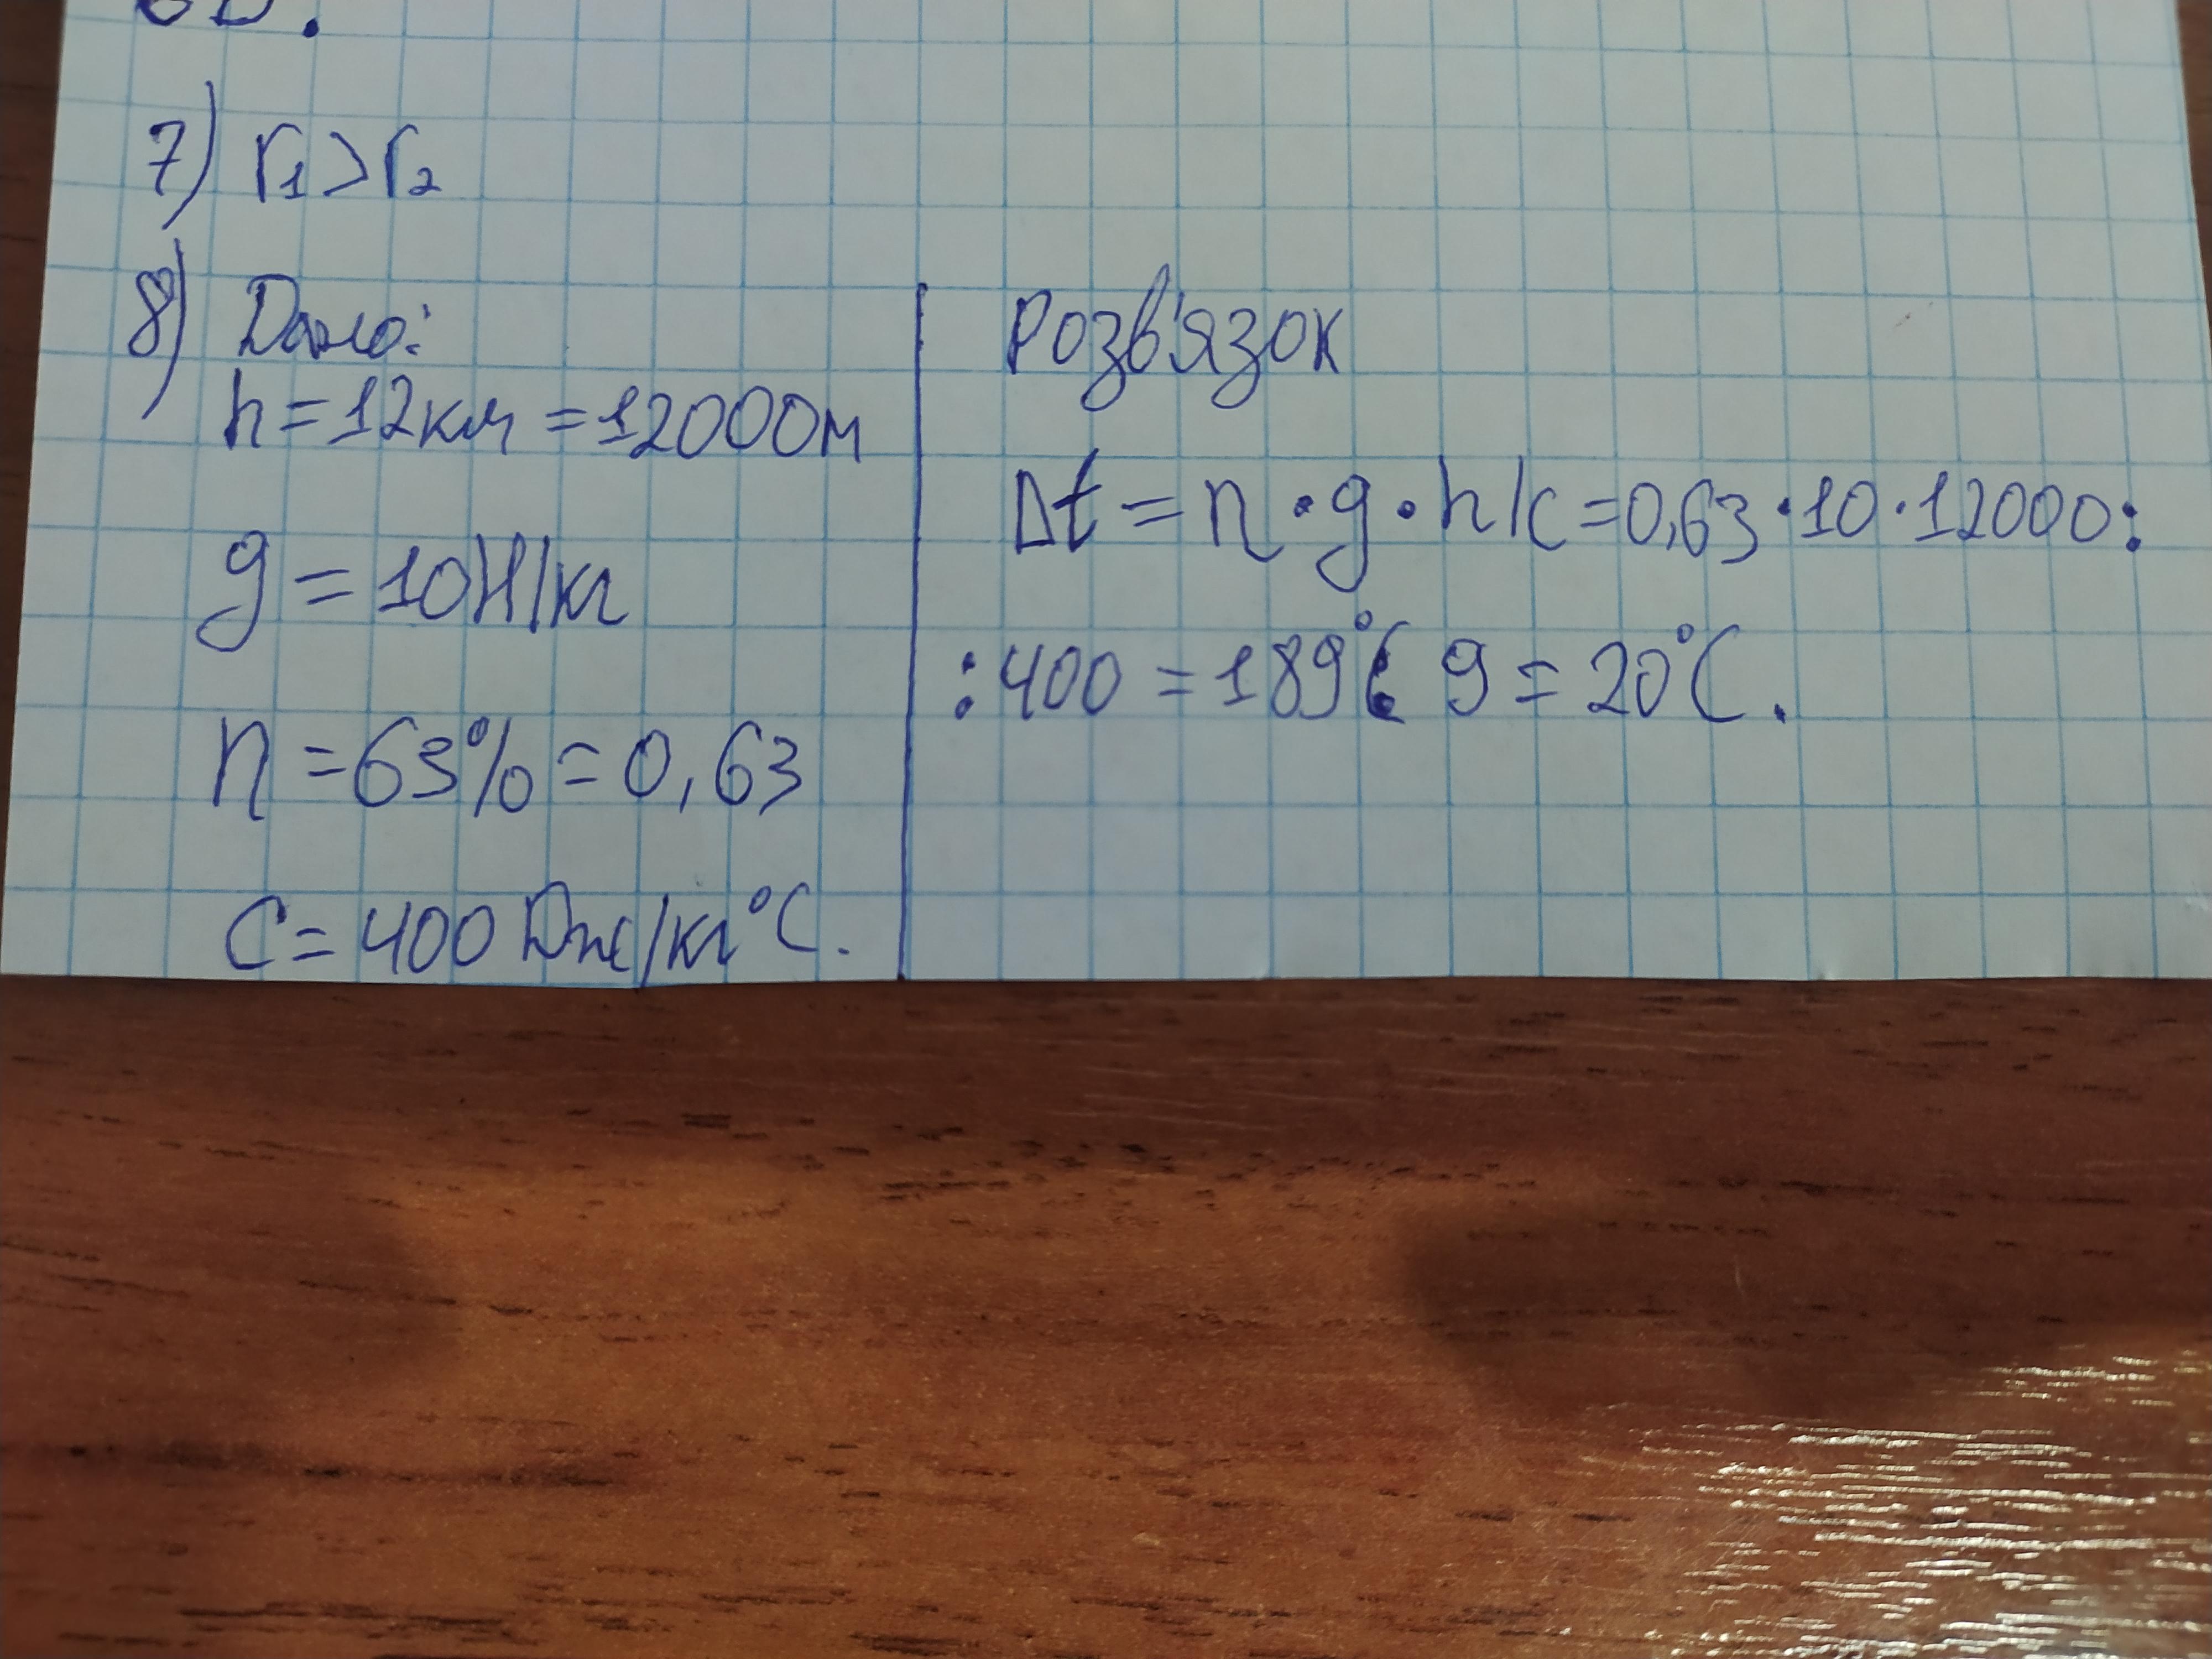 7) r₁ > r₂
8) Дано:
h = 12км = 12000м
g = 10Н/кг
n = 63% = 0,63
C = 400 Дж/кг°C.
Розв'язок
Δt = n · g · h/c = 0,63 · 10 · 12000 :
: 400 = 189°C 9 = 20°C.